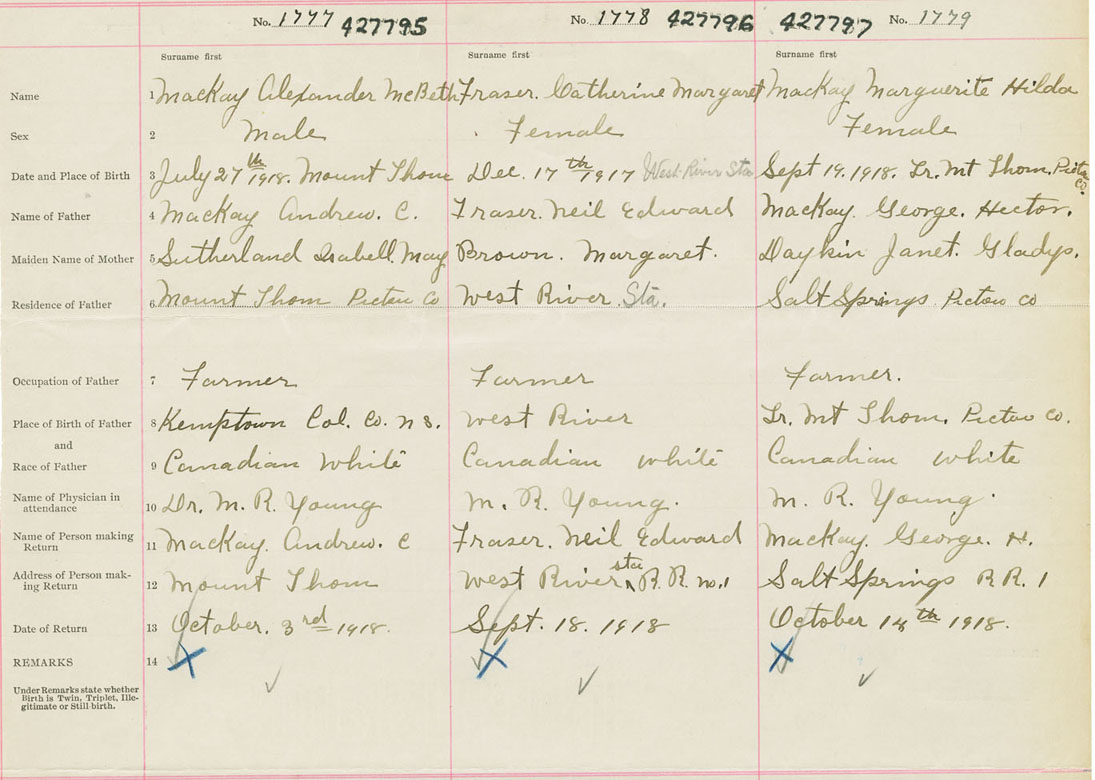 No. 1777 427795 No. 1778 427796 427797 No. 1779
Surname first Surname first Surname first
Name 1 MacKay Alexander McBeth Fraser. Catherine Margaret MacKay Marguerite Hilda
Sex 2 Male Female Female
Date and Place of Birth 3 July 27th 1918. Mount Thom Dec. 17th 1917 West River Sta Sept 19. 1918. Lr. Mt Thom. Pictou Co.
Name of Father 4 MacKay Andrew. C. Fraser. Neil Edward MacKay. George. Hector.
Maiden Name of Mother 5 Sutherland Isabell. May Brown. Margaret. Daykin Janet. Gladys.
Residence of Father 6 Mount Thom Pictou Co West River Sta. Salt Springs Pictou Co
Occupation of Father 7 Farmer Farmer Farmer.
Place of Birth of Father 8 Kemptown Col. Co. N S. West River Lr. Mt Thom. Pictou Co.
and
Race of Father 9 Canadian White Canadian White Canadian White
Name of Physician in attendance 10 Dr. M. R. Young M. R. Young. M. R. Young.
Name of Person making Return 11 MacKay. Andrew. C Fraser. Neil Edward MacKay. George. H.
Address of Person making Return 12 Mount Thom West River Sta R. R. No. 1 Salt Springs R R. 1
Date of Return 13 October. 3rd 1918. Sept. 18. 1918 October 14th 1918.
REMARKS 14 X X X
Under Remarks state whether
Birth is Twin, Triplet, Ille-
gitimate or Still birth.